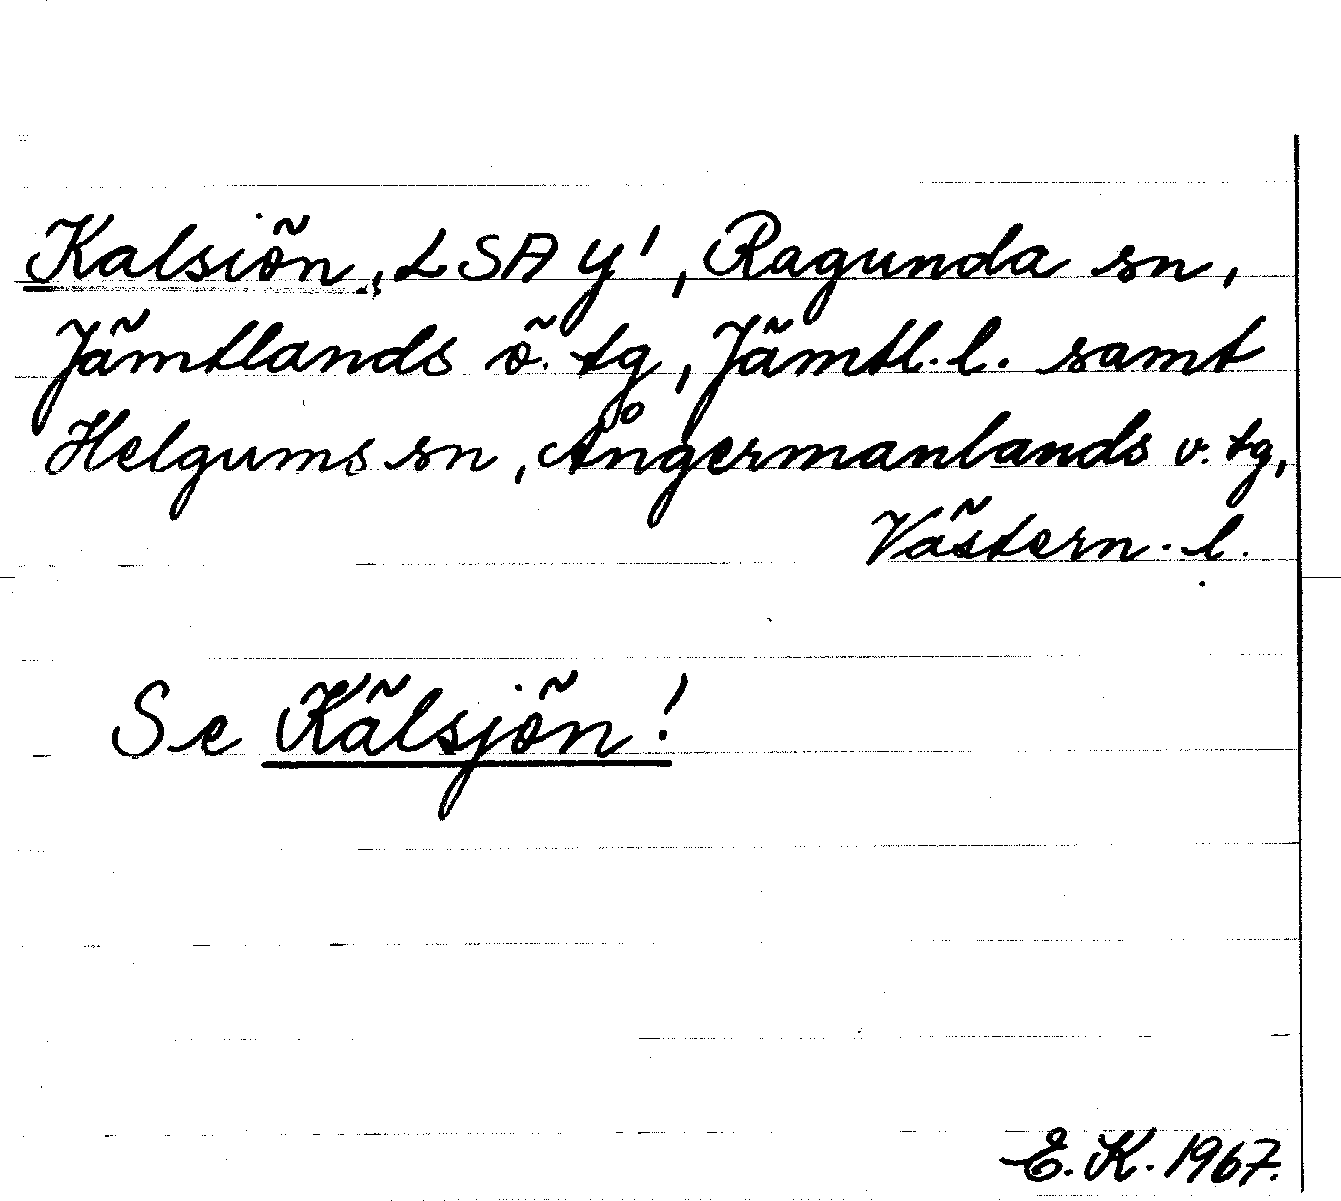 Kalsiön, LSA Y', Ragunda sn,
Jämtlands ö. tg, Jämtl. l. samt
Helgums sn, Ångermanlands v. tg,
Västern. l.
Se Kälsjön!
E. K. 1967.